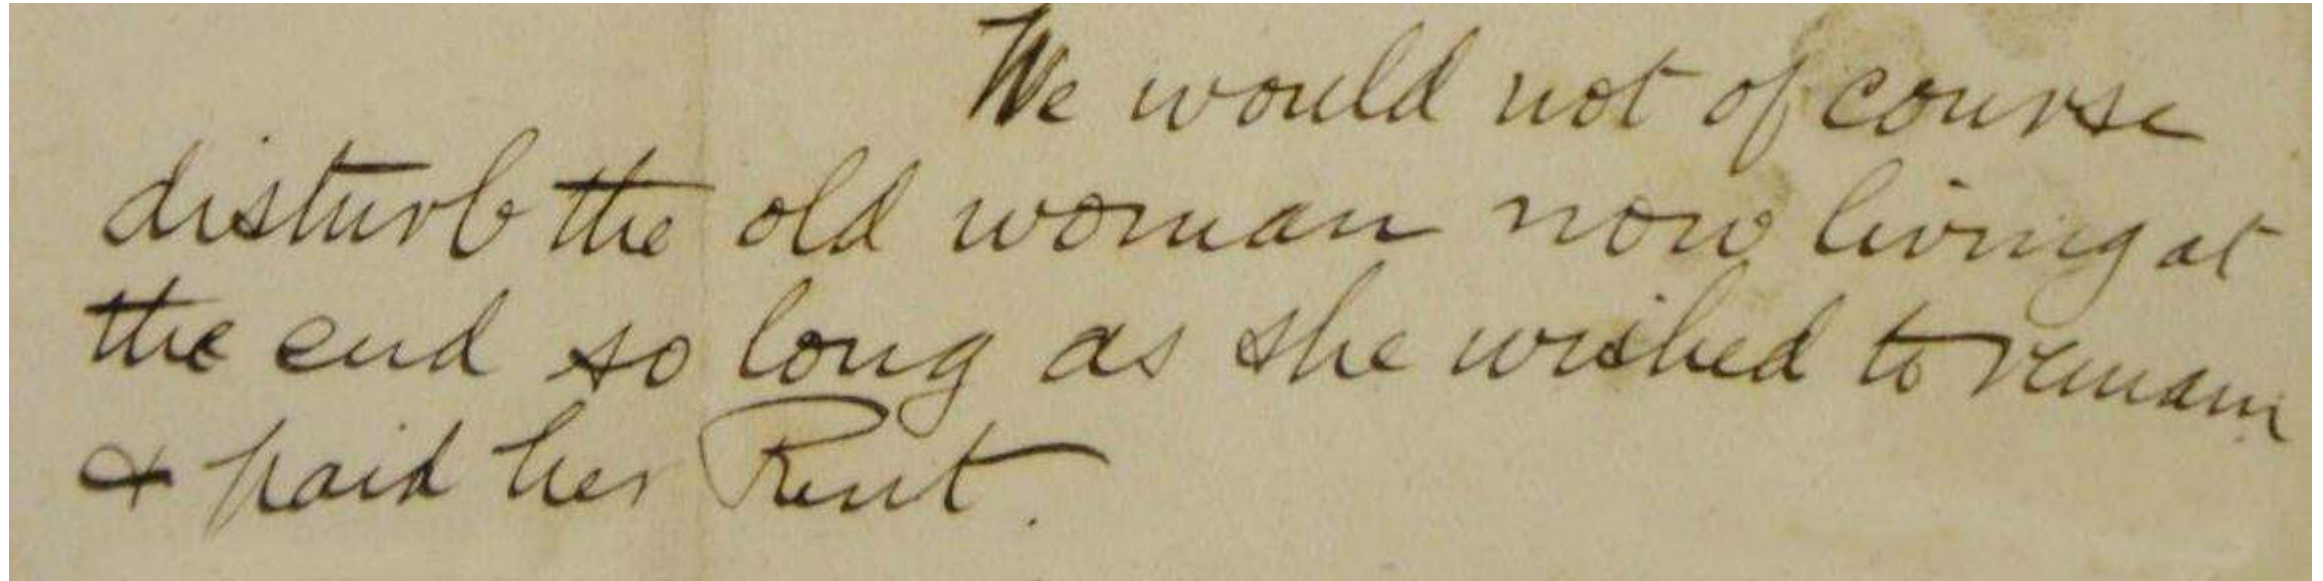 We would not of course
disturb the old woman now living at
the end so long as she wished to remain
& paid her Rent.